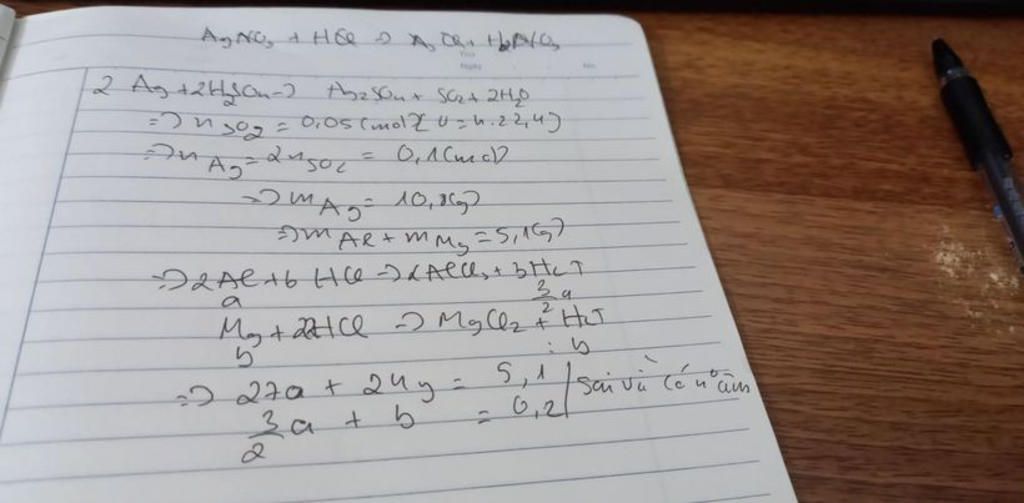 AgNO3 + HCl => AgCl + HNO3
2 Ag + 2H2SO4 => Ag2SO4 + SO2 + 2H2O
=> n SO2 = 0,05 (mol) ( V = n.22,4)
=> n Ag = 2n SO2 = 0,1 (mol)
=> m Ag = 10,8 (g)
=> m Al + m Mg = 5,1 (g)
=> 2Al + 6 HCl => 2AlCl3 + 3H2↑
a 3/2 a
Mg + 2HCl => MgCl2 + H2↑
b : b
=> 27a + 24y = 5,1 | sai vì có n° âm
3/2 a + b = 0,2